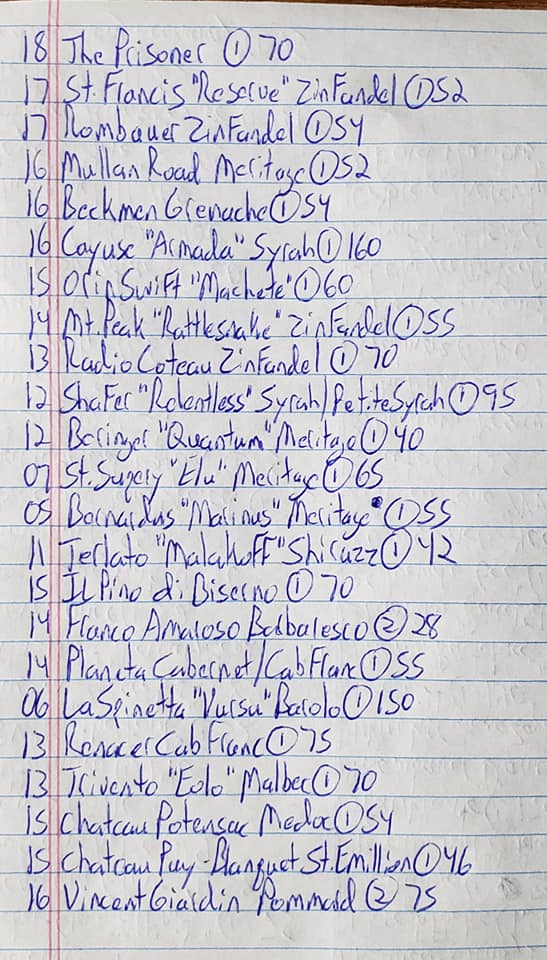 18 The Prisoner ① 70
17 St. Francis "Reserve" Zinfandel ① 52
17 Rombauer Zinfandel ① 54
16 Mullan Road Meritage ① 52
16 Beckmen Grenache ① 54
16 Cayuse "Armada" Syrah ① 160
15 Orin Swift "Machete" ① 60
14 Mt. Peak "Rattlesnake" Zinfandel ① 55
13 Radio Coteau Zinfandel ① 70
12 Shafer "Relentless" Syrah/Petite Syrah ① 95
12 Beringer "Quantum" Meritage ① 40
07 St. Supery "Elu" Meritage ① 65
05 Bernardus "Marinus" Meritage ① 55
11 Terlato "Malakoff" Shirazz ① 42
15 Il Pino di Biserno ① 70
14 Franco Amoroso Barbaresco ② 28
14 Planeta Cabernet/Cab Franc ① 55
06 La Spinetta "Vursu" Barolo ① 150
13 Renacer Cab Franc ① 75
13 Trivento "Eolo" Malbec ① 70
15 Chateau Potensac Medoc ① 54
15 Chateau Puy-Blanquet St. Emillion ① 46
16 Vincent Giardin Pommard ② 75